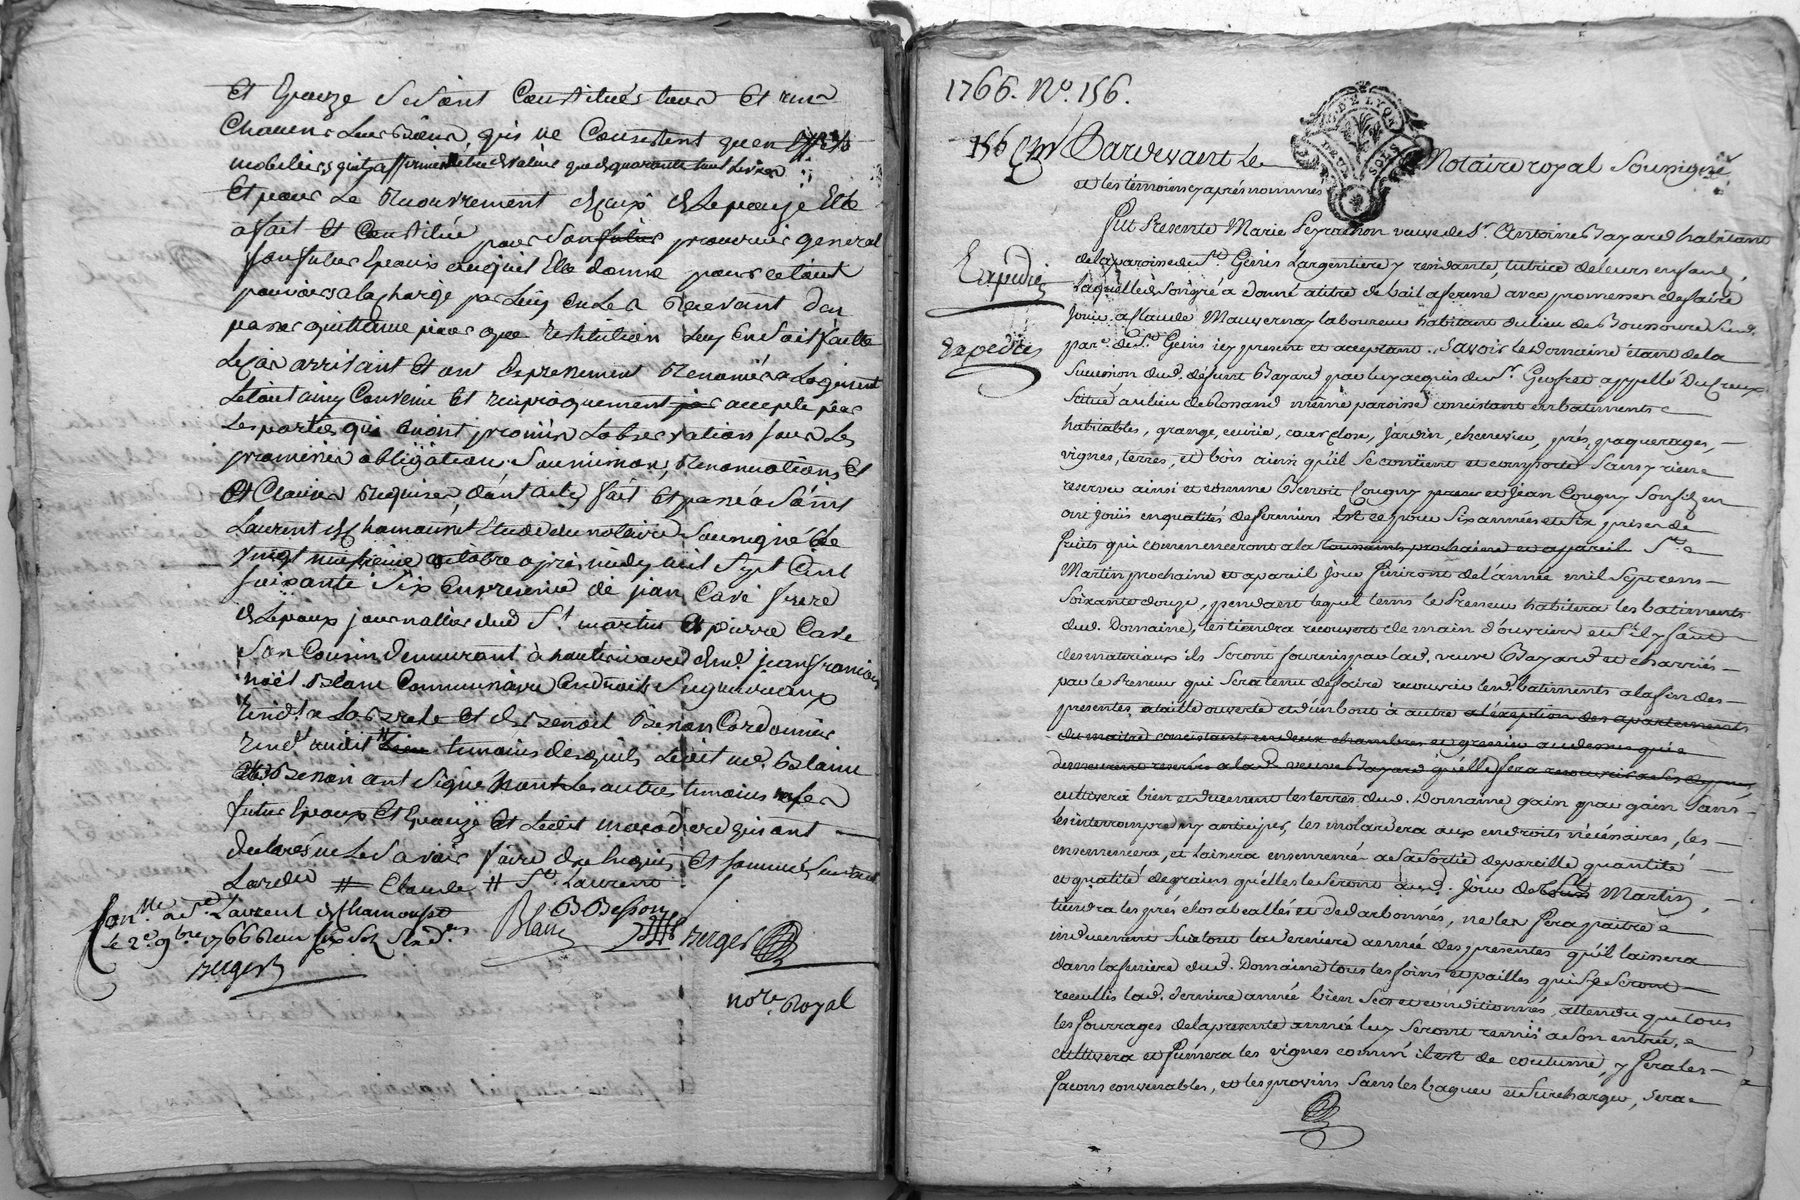 et Epouze se sont Constitués tous et uns
Chacuns Leurs biens, qui ne Consistent qu'en effets
mobiliers qu'ils affirment être de valeur que de quarante huit Livres
Et pour Le Recouvrement d'iceux de Lepouze Elle
a fait et Constitué pour son procureur general
son futur Epoux auquel Elle donne pour ce tout
pouvoirs a la charge par Luy en Les Recevant d'en
passer quittance pour que restitution Luy en soit faitte
Le cas arrivant et ont Expressement Renoncé
Le tout ainsy Convenu Et reciproquement accepté par
Les parties qui en ont promis L'observation sous Les
promesses obligations, Soumissions, Renonciations, et
et Clauses requises dont acte, fait et passé a Saint
Laurent de Chamousset Etude du notaire Soussigné Le
vingt octobre apres midy mil Sept Cent
soixante Six En presence de jean Cave frere
de Lepoux journallier dud St martin Et pierre Cave
Son Cousin demeurant à hauterivoire jean francois
noël Blanc Commissaire en droits Seigneuriaux
resid.t a La et de Benoit Besson Cordonnier
resid.t audit Lieu temoins desquels Ledit Blanc
et Besson ont Signé non Les autres temoins
futur Epoux Et Epouze Et Ledit qui ont
declarés ne Le Savoir faire de ce Enquis, et sommés, suivant
L'ordre # Claude # St Laurent
Con.lle a St Laurent de Chamousset
Le 2e 9bre 1766 Reçu six Sols
Berger
Blanc
B Besson
Berger
nore. Royal
1766. No. 156.
156 Pardevant Le Notaire royal Soussigné
G. DE LYON
DEUX SOLS
et les témoins cy après nommés
Fut Presente Marie Peyrachon veuve de Sr. Antoine Bayard habitant
de la paroisse de St. Genis Largentiere y residante, tutrice de leurs enfans,
Expediée
laquelle de son gré a donné a titre de bail a ferme avec promesse de faire
jouir a Claude Mauvernay laboureur habitant du lieu de
Expediée
par.e de St. Genis icy present et acceptant. Savoir le Domaine étant de la
Succession dud. défunt Bayard par luy acquis du Sr. Geofret appellé Du Creux
Scitué au lieu de Rossand même paroisse consistant en batiments
habitables, grange, ecurie, cour close, jardin, cheneviere, prés, paquerages,
vignes, terres, et bois ainsi qu'il se contient et comporte Sans y rien
reserver ainsi et comme Benoit Cougny pere et Jean Cougny Son fils en
ont joüis en qualités de fermiers Et ce pour Six années et Six prises de
fruits qui commenceront a la toussaints prochaine et a pareil St.
Martin prochaine et a pareil jour finiront de l'année mil Sept cens
Soixante douze, pendant lequel tems le Preneur habitera les batiments
dud. Domaine, les tiendra recouvert de main d'ouvrier et s'il y faut
des materiaux ils Seront fournis par lad. veuve Bayard et charriés
par le Preneur qui Sera tenu de faire recouvrir led. batiments a la fin des
presentes, a taille ouverte et d'un bout à autre a l'exeption des apartements
du maitre consistants en deux chambres et grenier au dessus qui
demeurent reservés a lad. veuve Bayard qu'elle fera recouvrir a Ses depens
cultivera bien et duement les terres dud. Domaine gain par gain Sans
les interrompre ny anticiper, les molardera aux endroits nécéssaires, les
ensemencera, et laissera ensemencé a Sa Sortie de pareille quantité
et qualité de grains qu'elles le Seront aud. Jour de St Martin,
tiendra les prés clos aballés et dedarbonnés, ne les fera paitre
induement Surtout la derniere année des presentes qu'il laissera
dans la feniere dud. Domaine tous les foins et pailles qui Se Seront
recueillis lad. derniere année bien Secs et conditionnés, attendu que tous
les fourrages de la presente année luy Seront remis a Son entrée,
cultivera et fumera les vignes comm'il est de coutume, y fera les
façons convenables, et les provins Sans les Surcharger, Sera